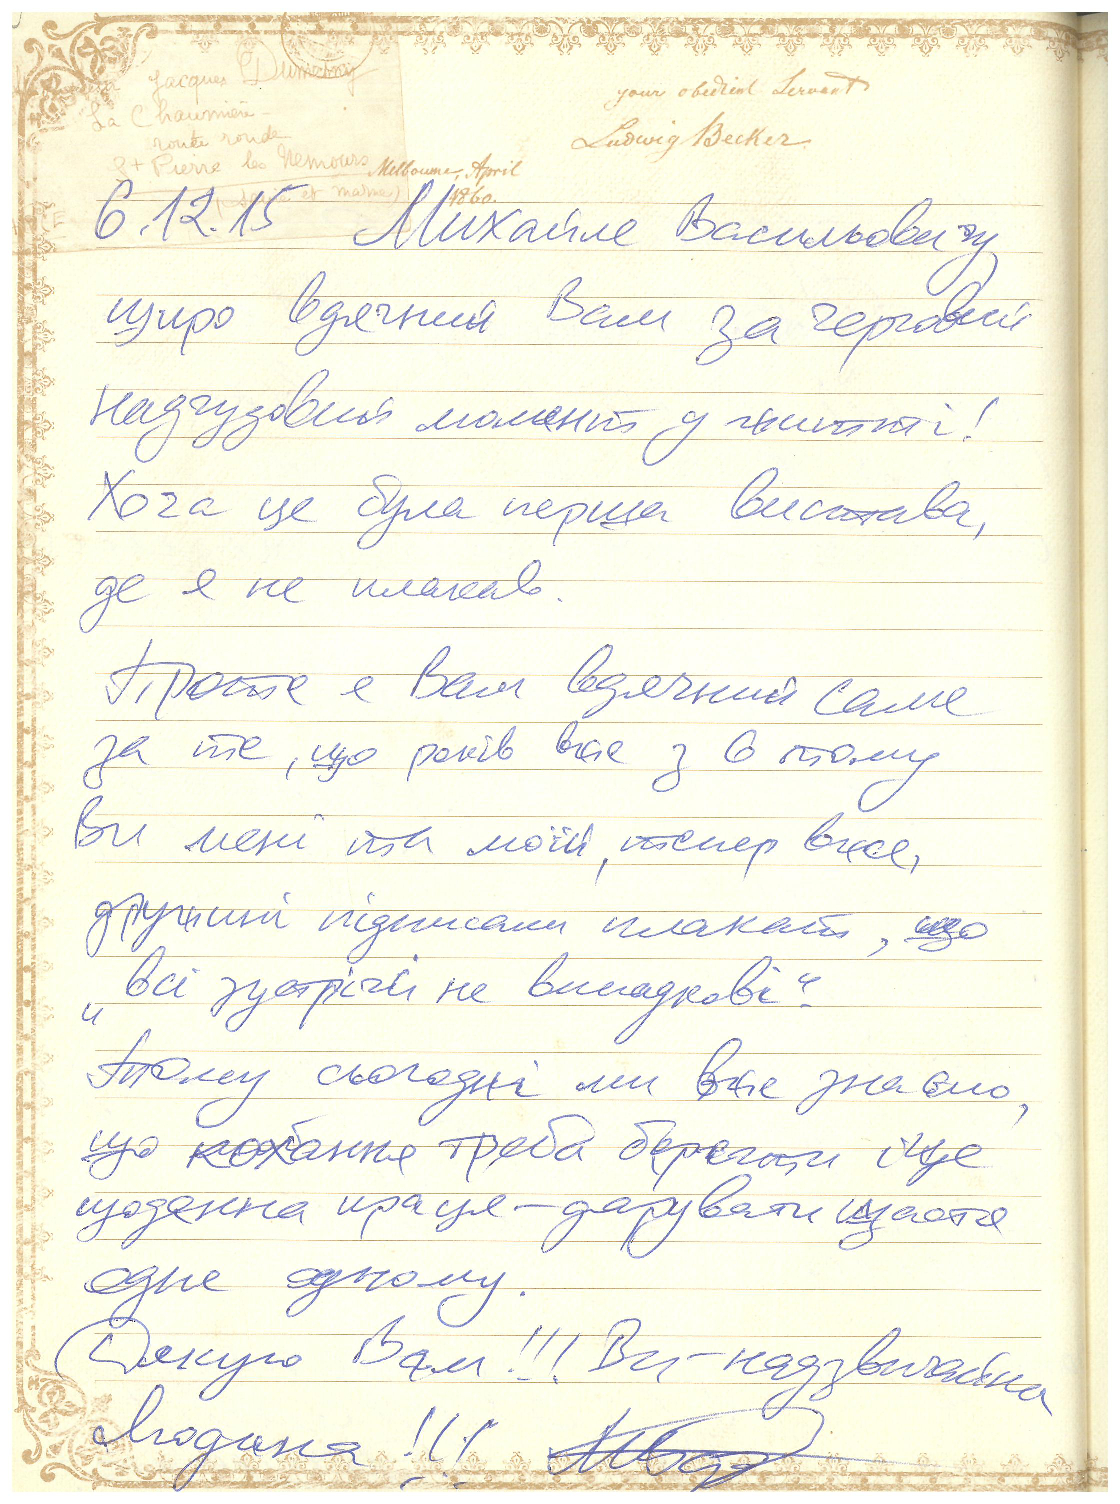 Jacques Dumesny
La Chaumière
route ronde
St Pierre les Nemours
your obedient Servant
Ludwig Becker
Melbourne, April
1860.
6.12.15 Михайле Васильовичу
щиро вдячний Вам за черговий
надчудовий момент у житті!
Хоча це була перша вистава,
де я не плакав.
Проте я Вам вдячний саме
за те, що років вже з 6 тому
Ви мені та моїй, тепер вже,
дружині підписали плакат, що
„всі зустрічі не випадкові“.
Тому сьогодні ми вже знаємо,
що кохання треба берегти і це
щоденна праця – дарувати щастя
одне одному.
Дякую Вам!!! Ви – надзвичайна
людина!!!